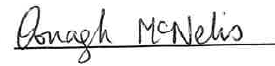 Oonagh McNelis